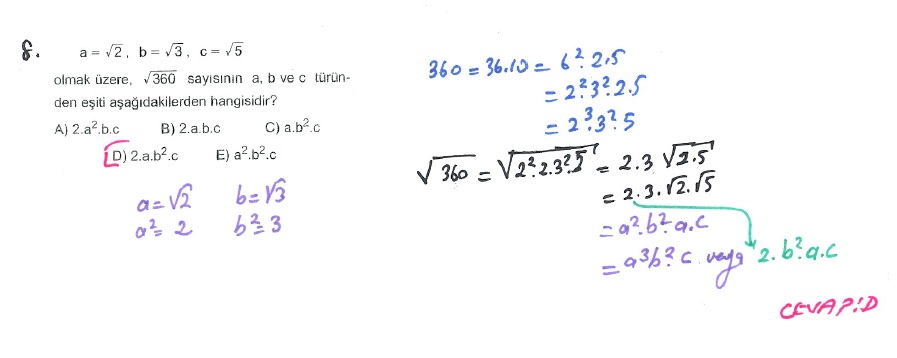 8.
a = √2 , b = √3 , c = √5
olmak üzere, √360 sayısının a, b ve c türün-
den eşiti aşağıdakilerden hangisidir?
A) 2.a².b.c B) 2.a.b.c C) a.b².c
D) 2.a.b².c E) a².b².c
a = √2 b = √3
a² = 2 b² = 3
360 = 36.10 = 6².2.5
= 2².3².2.5
= 2³.3².5
√360 = √2².2.3².5 = 2.3 √2.5
= 2.3.√2.√5
= a².b².a.c
= a³b².c veya 2.b².a.c
CEVAP: D